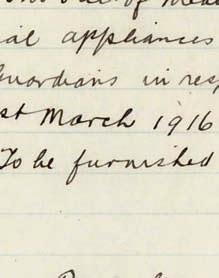 ial appliances
Guardians in resp
st March 1916
To be furnished